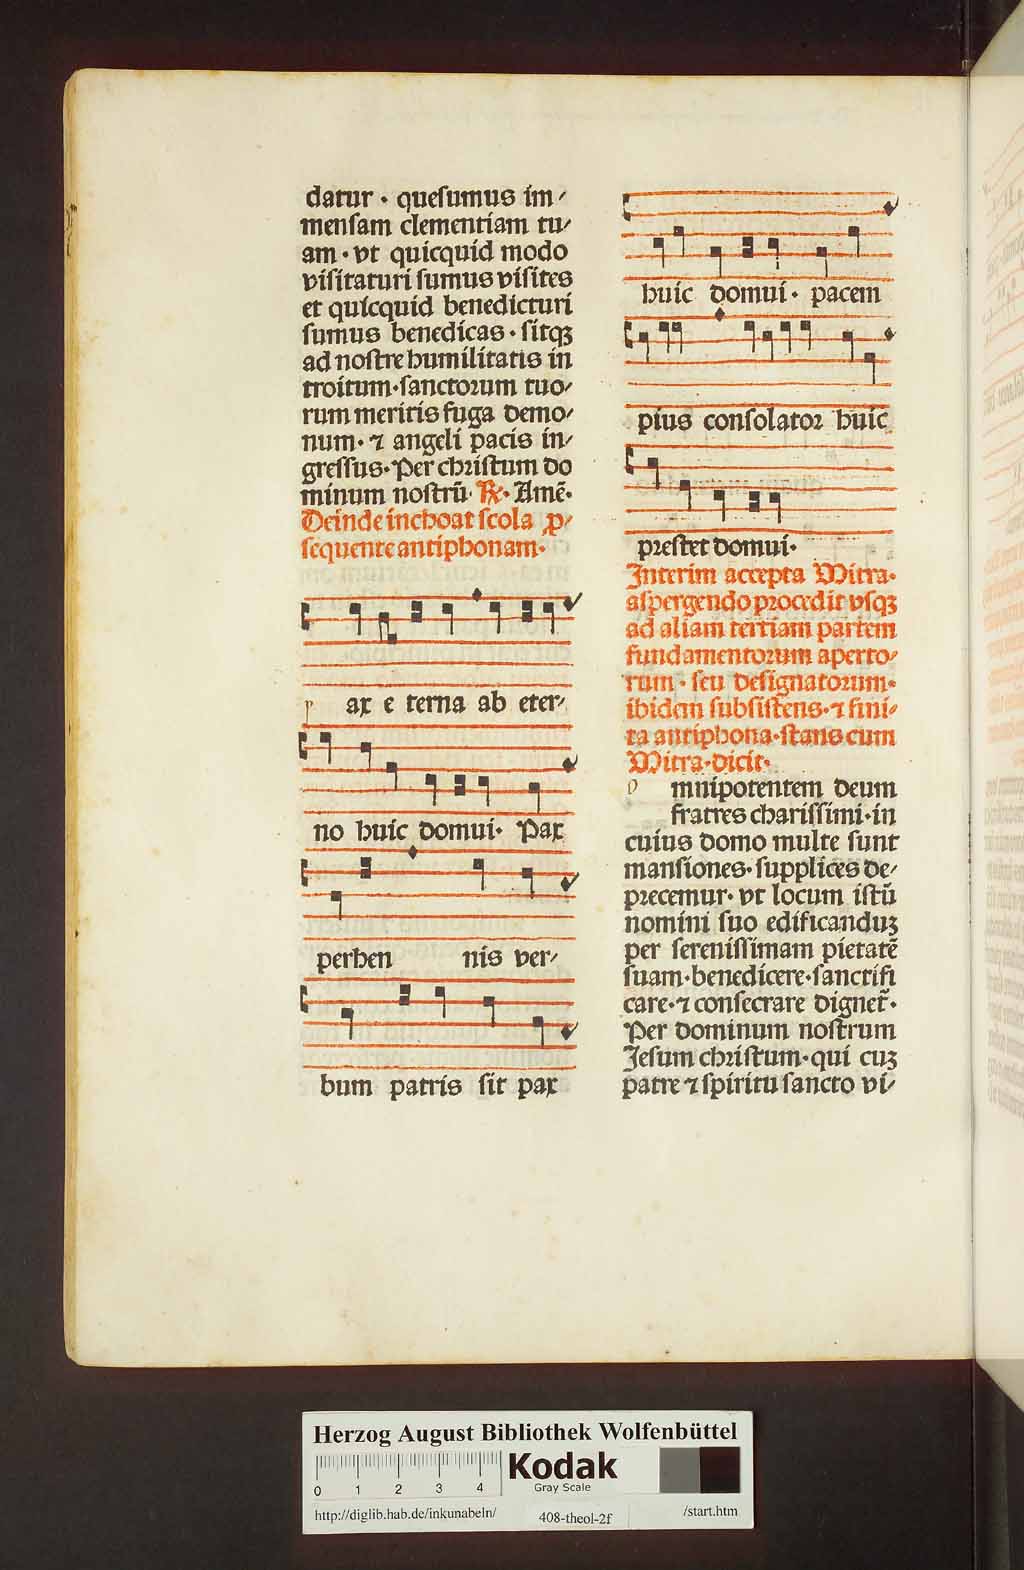 datur · quesumus im⸗
mensam clementiam tu⸗
am · vt quicquid modo
visitaturi sumus visites
et quicquid benedicturi
sumus benedicas · sitqꝫ
ad nostre humilitatis in
troitum · sanctorum tuo⸗
rum meritis fuga demo⸗
num · ⁊ angeli pacis in⸗
gressus · Per christum do
minum nostrū · ℟ · Amē ·
Deinde inchoat scola ꝓ⸗
sequente antiphonam ·
p ax e terna ab eter⸗
no huic domui · Pax
perhen nis ver⸗
bum patris sit pax
huic domui · pacem
pius consolator huic
prestet domui ·
Interim accepta Mitra ·
aspergendo procedit vsqꝫ
ad aliam tertiam partem
fundamentorum aperto⸗
rum · seu designatorum ·
ibidem subsistens · ⁊ fini⸗
ta antiphona · stans cum
Mitra · dicit ·
o mnipotentem deum
fratres charissimi · in
cuius domo multe sunt
mansiones · supplices de⸗
precemur · vt locum istū
nomini suo edificanduꝫ
per serenissimam pietatē
suam · benedicere · sanctifi
care · ⁊ consecrare dignet᷒ ·
Per dominum nostrum
Jesum christum · qui cuꝫ
patre ⁊ spiritu sancto vi⸗
Herzog August Bibliothek Wolfenbüttel
0 1 2 3 4
Kodak
Gray Scale
http://diglib.hab.de/inkunabeln/ 408-theol-2f /start.htm